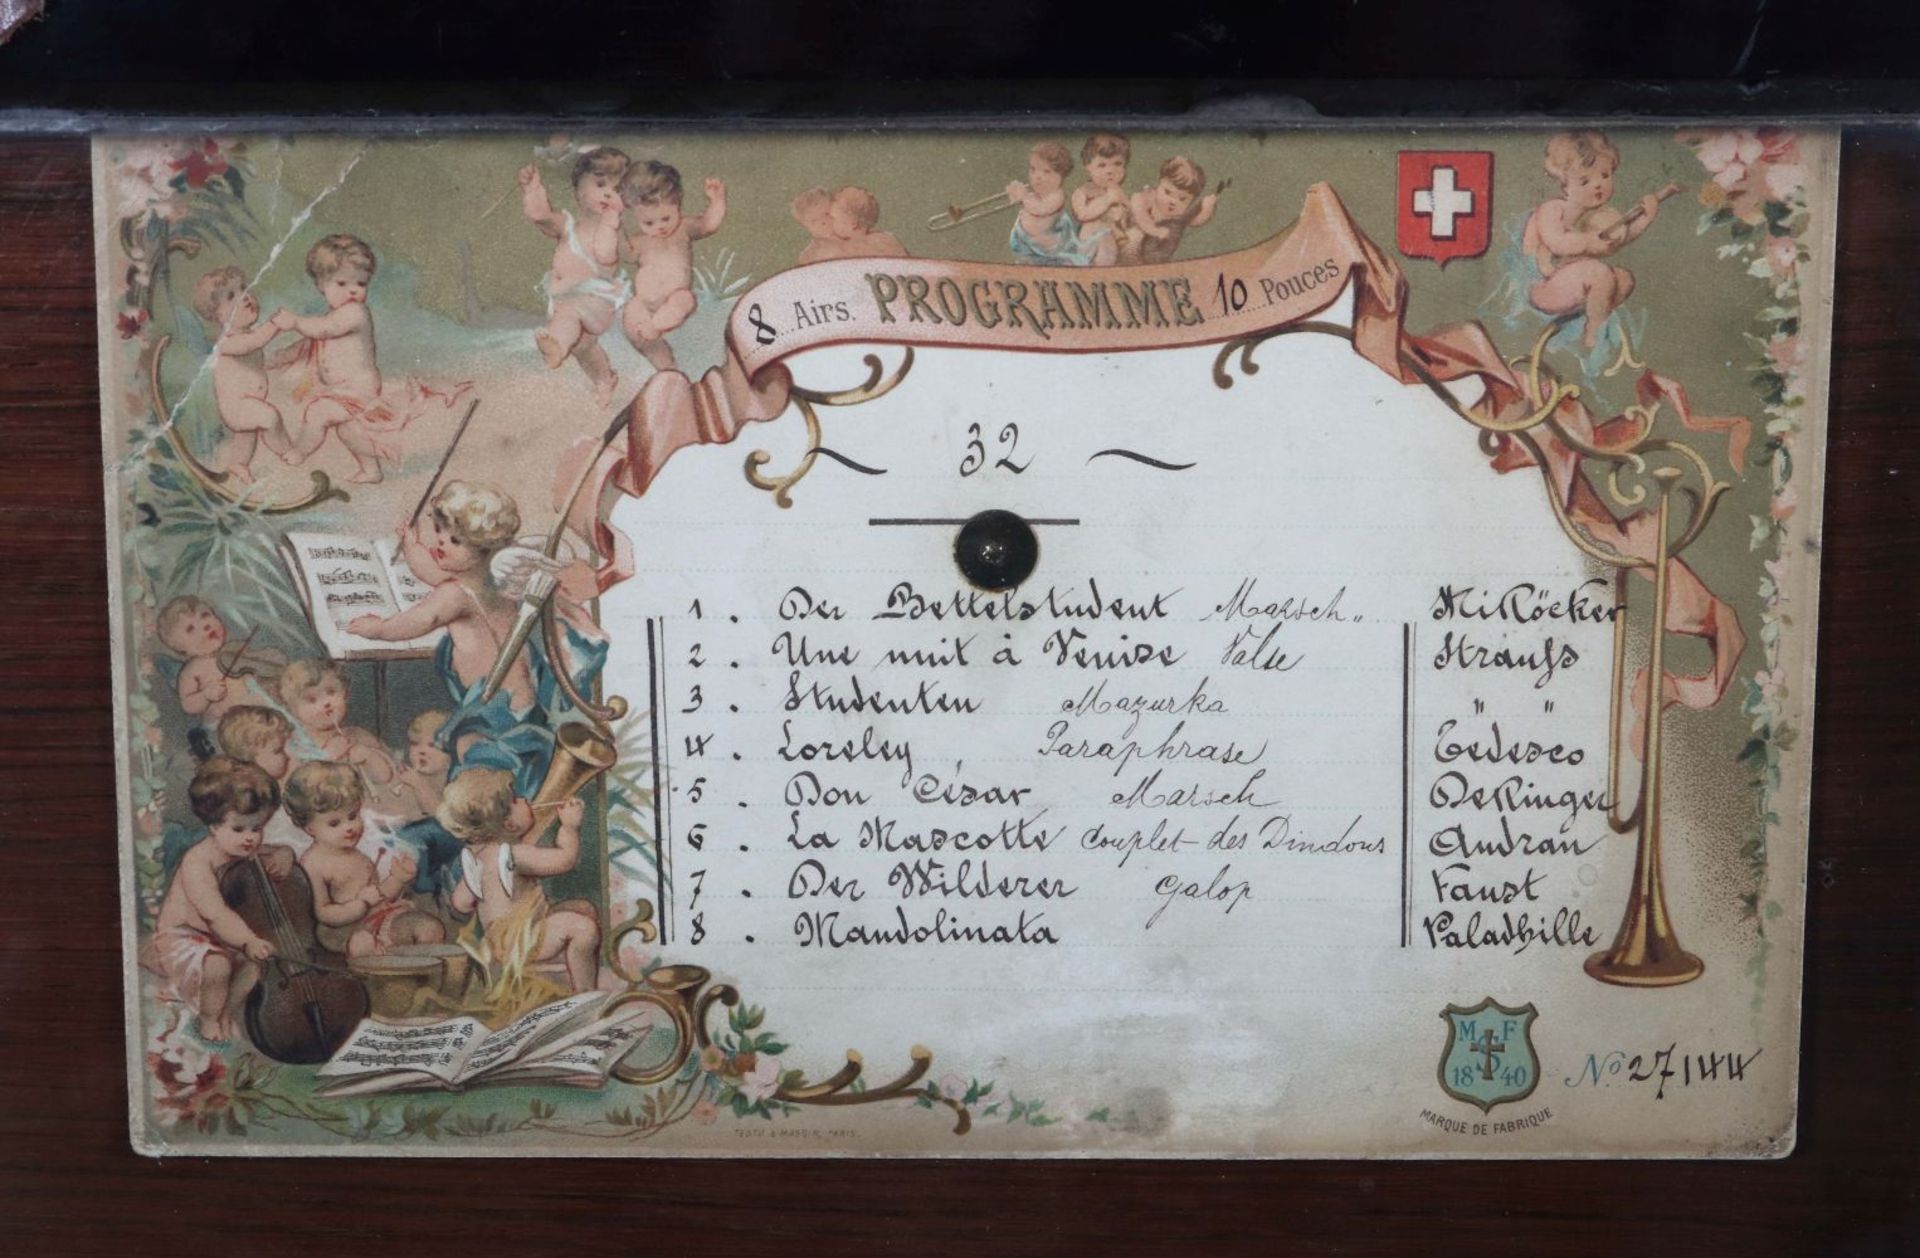 8 Airs. PROGRAMME 10 Pouces
~ 32 ~
1 . Der Bettelstudent Marsch „ Millöcker
2 . Une nuit à Venise Valse Strauss
3 . Studenten Mazurka " "
4 . Loreley , Paraphrase Tedesco
5 . Don César Marsch Dellinger
6 . La Mascotte Couplet des Dindons Audran
7 . Der Wilderer Galop Faust
8 . Mandolinata Paladhille
M F
S
18 40
No 27144
MARQUE DE FABRIQUE
TESTU & MASSIN, PARIS.